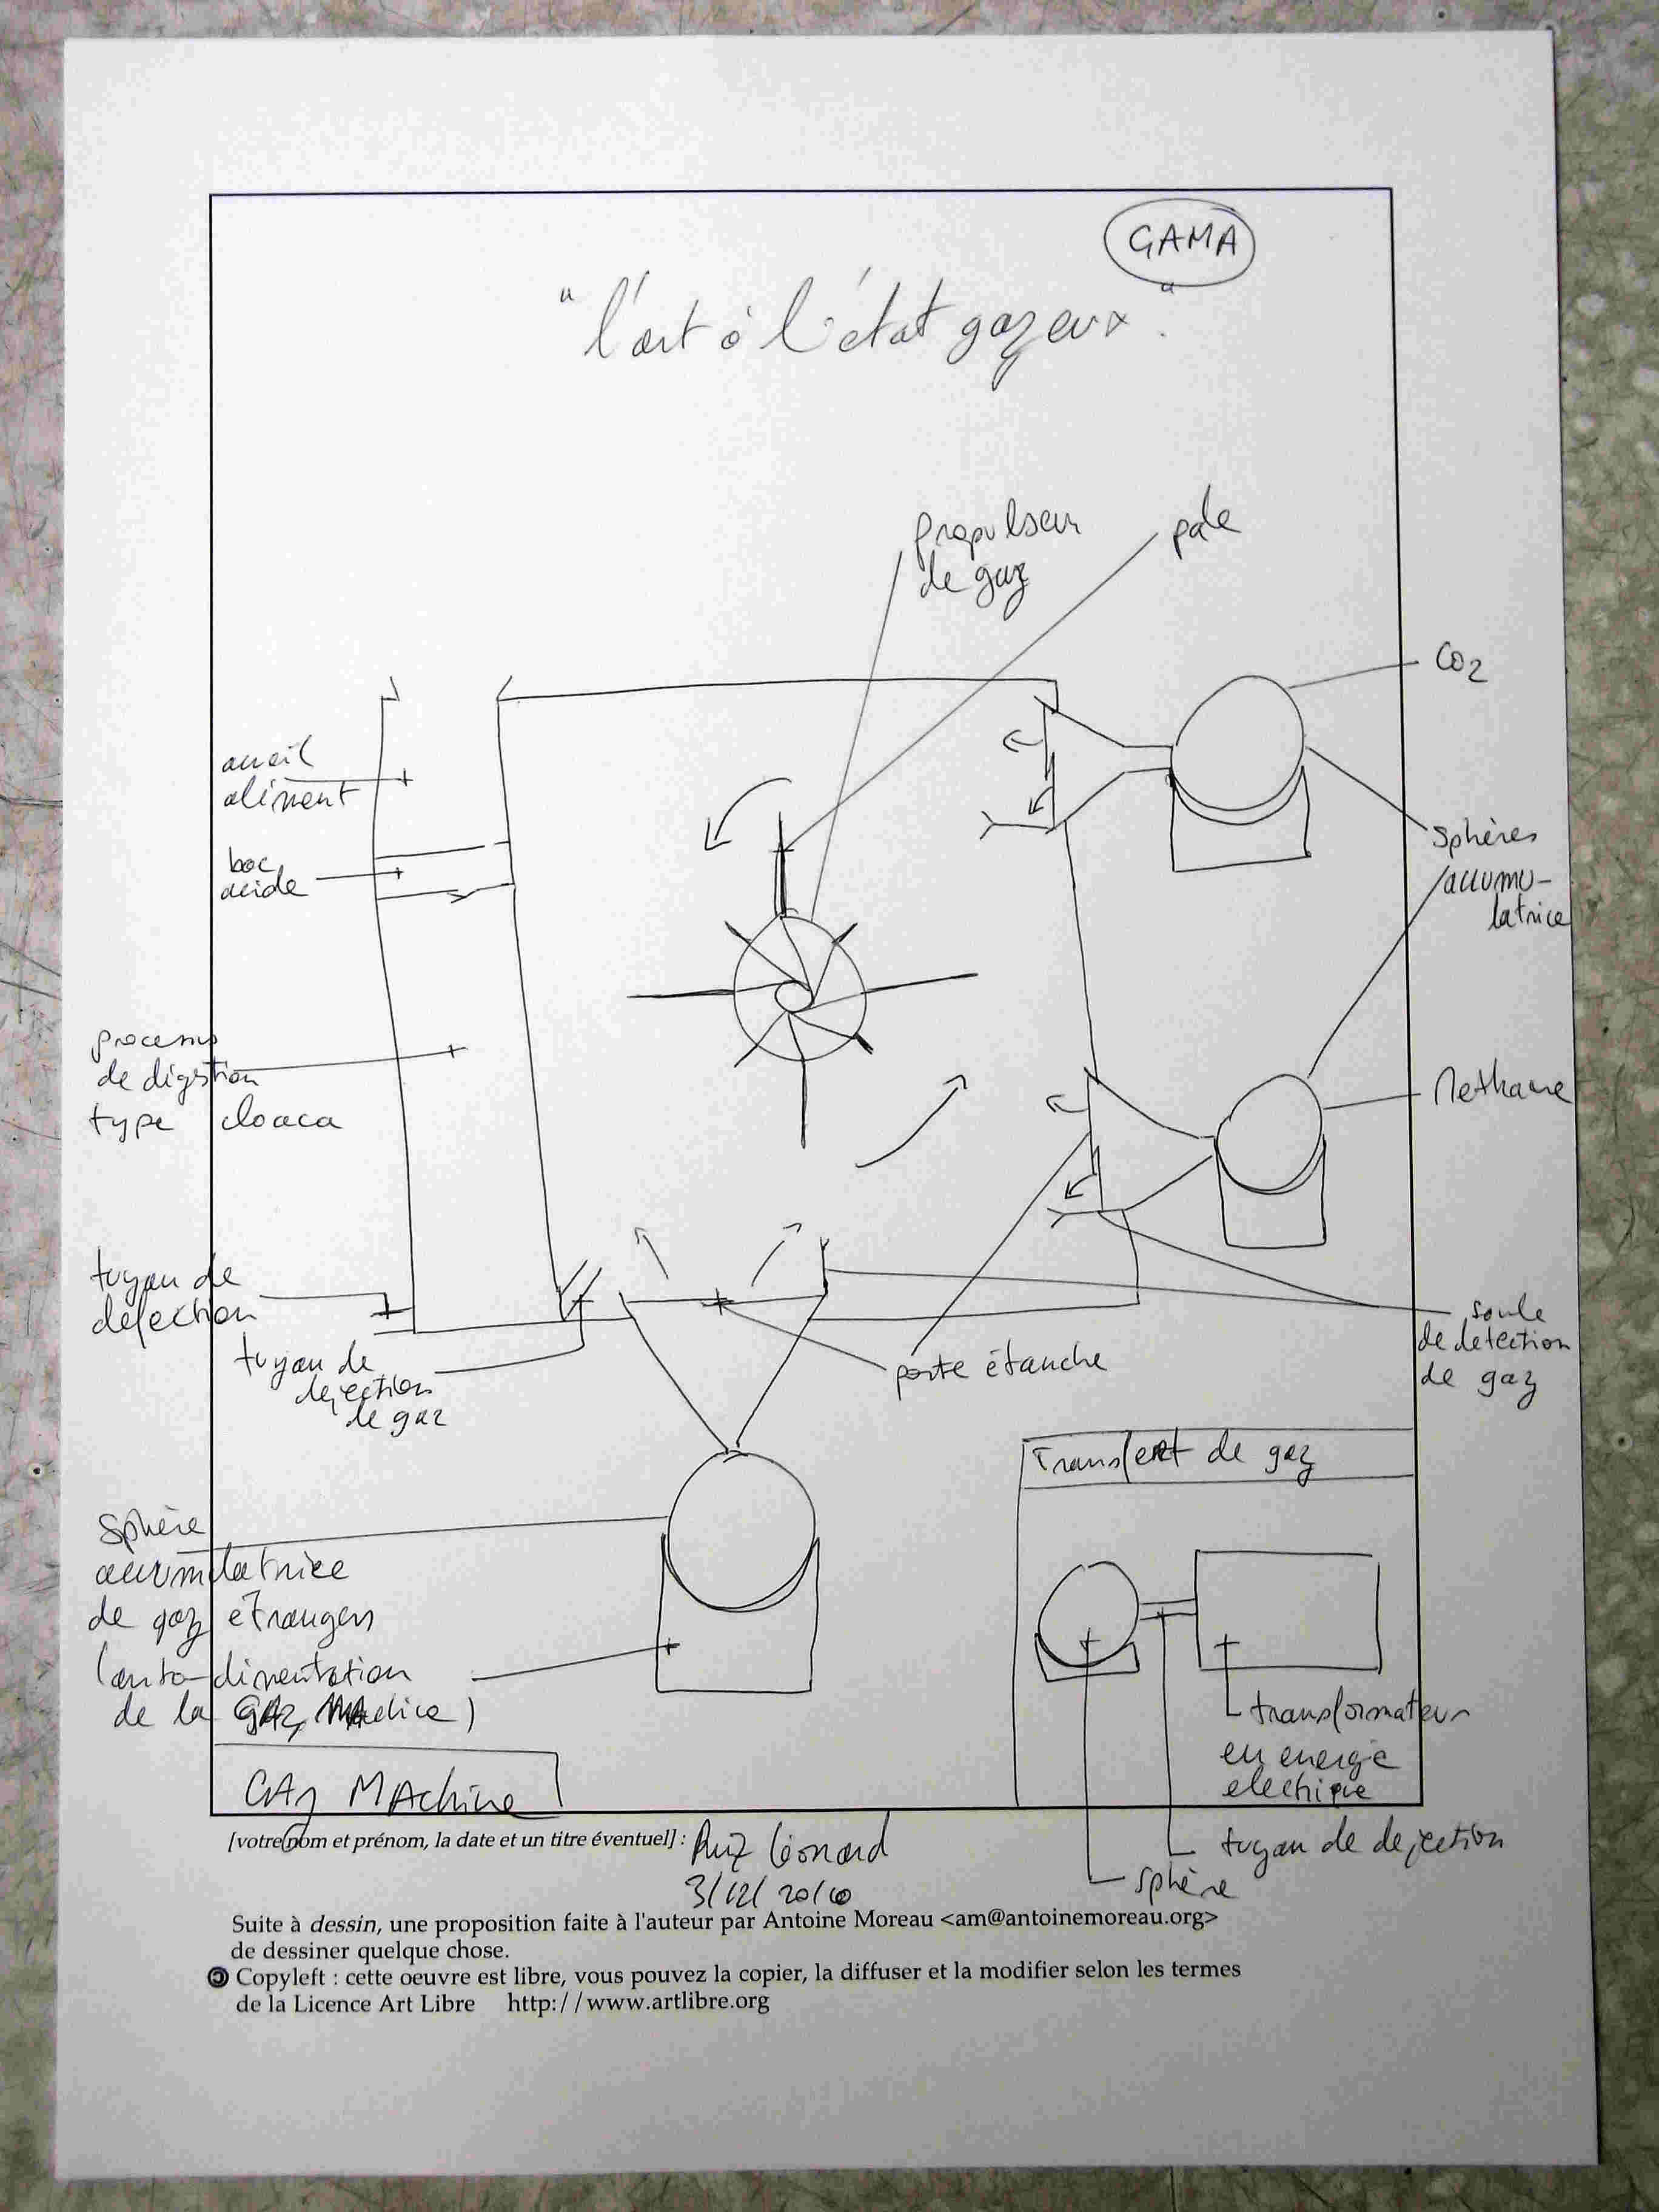 GAMA
"l'art à l'état gazeux."
propulseur
de gaz
pale
CO2
acueil
aliment
bac
acide
sphères
accumu-
latrice
processus
de digestion
type cloaca
Methane
tuyau de
dejection
tuyau de
dejection
de gaz
porte étanche
sonde
de detection
de gaz
Transfert de gaz
Sphère
accumulatrice
de gaz étrangers
(auto-alimentation
de la GAZ MAchine)
transformateur
en energie
electrique
GAz MAchine
[votre nom et prénom, la date et un titre éventuel] : Ruiz Léonard
3/12/2010
tuyau de dejection
sphère
Suite à dessin, une proposition faite à l'auteur par Antoine Moreau <am@antoinemoreau.org>
de dessiner quelque chose.
Copyleft : cette oeuvre est libre, vous pouvez la copier, la diffuser et la modifier selon les termes
de la Licence Art Libre http://www.artlibre.org